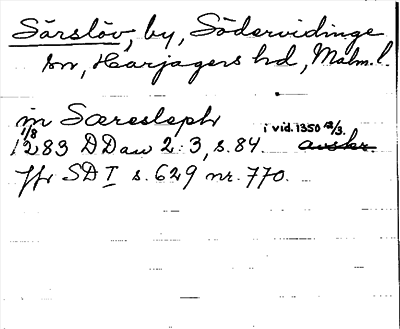 Särslöv, by, Södervidinge
sn, Harjagers hd, Malm. l.
in Særesleph
1/8
1283 DDaw 2:3, s. 84. i vid. 1350 12/3. avskr.
Jfr SD I s. 629 nr. 770.